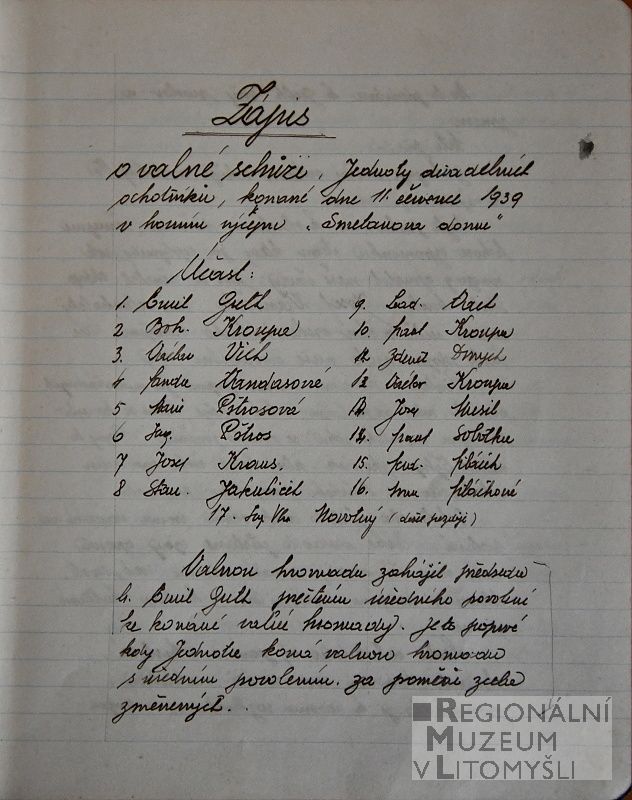 Zápis
o valné schůzi, Jednoty divadelních
ochotníků, konané dne 11. července 1939
v horním výčepu „Smetanova domu"
Účast:
1. Emil Guth 9. Lad. Vach
2 Boh. Kroupa 10. Karel Kroupa
3. Václav Vích 11. Zdeněk
4 Fanda Vandasová 12 Václav Kroupa
5 Marie Pštrosová 13. Josef
6 Jar. Pštros 14. Frant Sobotka
7 Josef Kraus. 15.
8 Stan. Jakubíček 16.
17. Novotný (došel později)
Valnou hromadu zahájil předseda
b. Emil Guth přečtením úředního povolení
ke konané valné hromady. Je to poprvé
kdy Jednota koná valnou hromadu
s úředním povolením. za poměrů zcela
změněných.
REGIONÁLNÍ
MUZEUM
V LITOMYŠLI